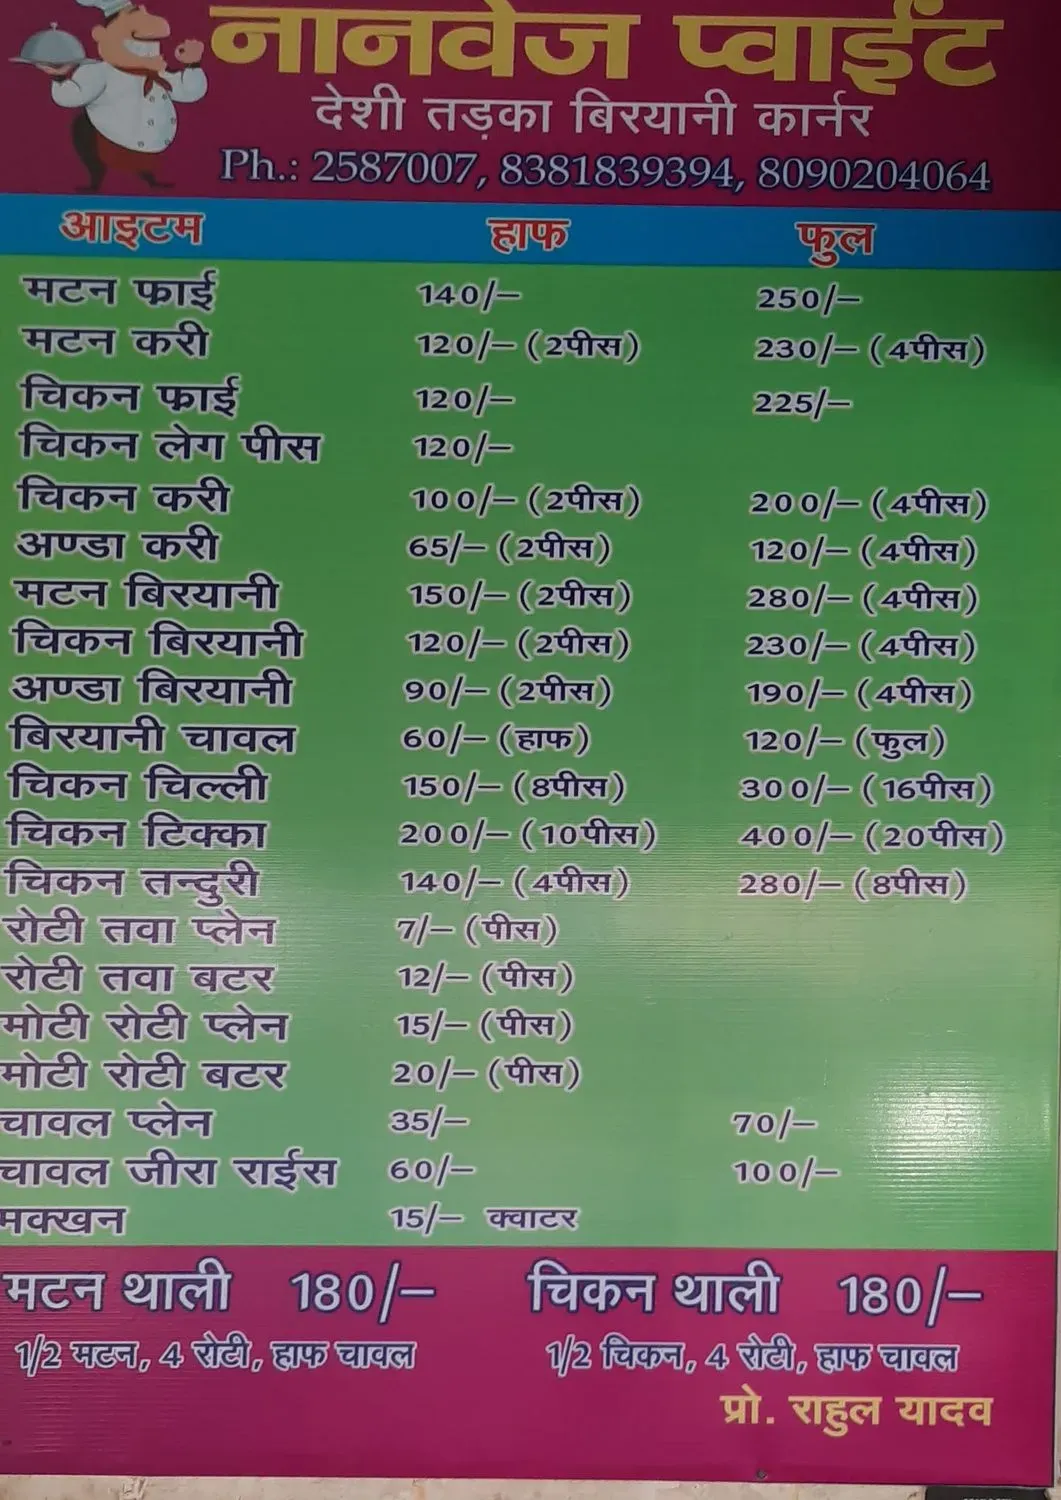 नानवेज प्वाईंट
देशी तड़का बिरयानी कार्नर
Ph.: 2587007, 8381839394, 8090204064
आइटम हाफ फुल
मटन फाई 140/– 250/–
मटन करी 120/– (2पीस) 230/– (4पीस)
चिकन फाई 120/– 225/–
चिकन लेग पीस 120/–
चिकन करी 100/– (2पीस) 200/– (4पीस)
अण्डा करी 65/– (2पीस) 120/– (4पीस)
मटन बिरयानी 150/– (2पीस) 280/– (4पीस)
चिकन बिरयानी 120/– (2पीस) 230/– (4पीस)
अण्डा बिरयानी 90/– (2पीस) 190/– (4पीस)
बिरयानी चावल 60/– (हाफ) 120/– (फुल)
चिकन चिल्ली 150/– (8पीस) 300/– (16पीस)
चिकन टिक्का 200/– (10पीस) 400/– (20पीस)
चिकन तन्दुरी 140/– (4पीस) 280/– (8पीस)
रोटी तवा प्लेन 7/– (पीस)
रोटी तवा बटर 12/– (पीस)
मोटी रोटी प्लेन 15/– (पीस)
मोटी रोटी बटर 20/– (पीस)
चावल प्लेन 35/– 70/–
चावल जीरा राईस 60/– 100/–
मक्खन 15/– क्वाटर
मटन थाली 180/– चिकन थाली 180/–
1/2 मटन, 4 रोटी, हाफ चावल 1/2 चिकन, 4 रोटी, हाफ चावल
प्रो. राहुल यादव